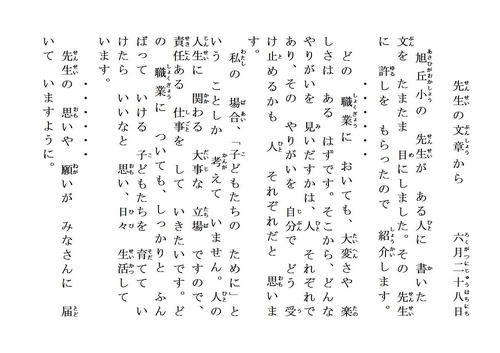 先生の文章から　六月二十八日
旭丘小の　先生が　ある人に　書いた
文を　たまたま　目にしました。その　先生
に　許しを　もらったので　紹介します。
・・・・・
どの　職業に　おいても、大変さや　楽
しさは　ある　はずです。そこから、どんな
やりがいを　見いだすかは、人　それぞれで
あり、その　やりがいを　自分で　どう　受
け止めるかも　人　それぞれだと　思いま
す。
私の　場合、「子どもたちの　ために」と
いう　ことしか　考えて　いません。人の
人生に　関わる　大事な　立場　ですので、
責任ある　仕事を　して　いきたいです。ど
の　職業に　ついても、しっかりと　ふん
ばって　いける　子どもたちを　育てて　い
けたら　いいなと　思い、日々　生活して
います。
・・・・・
先生の　思いや　願いが　みなさんに　届
いて　いますように。